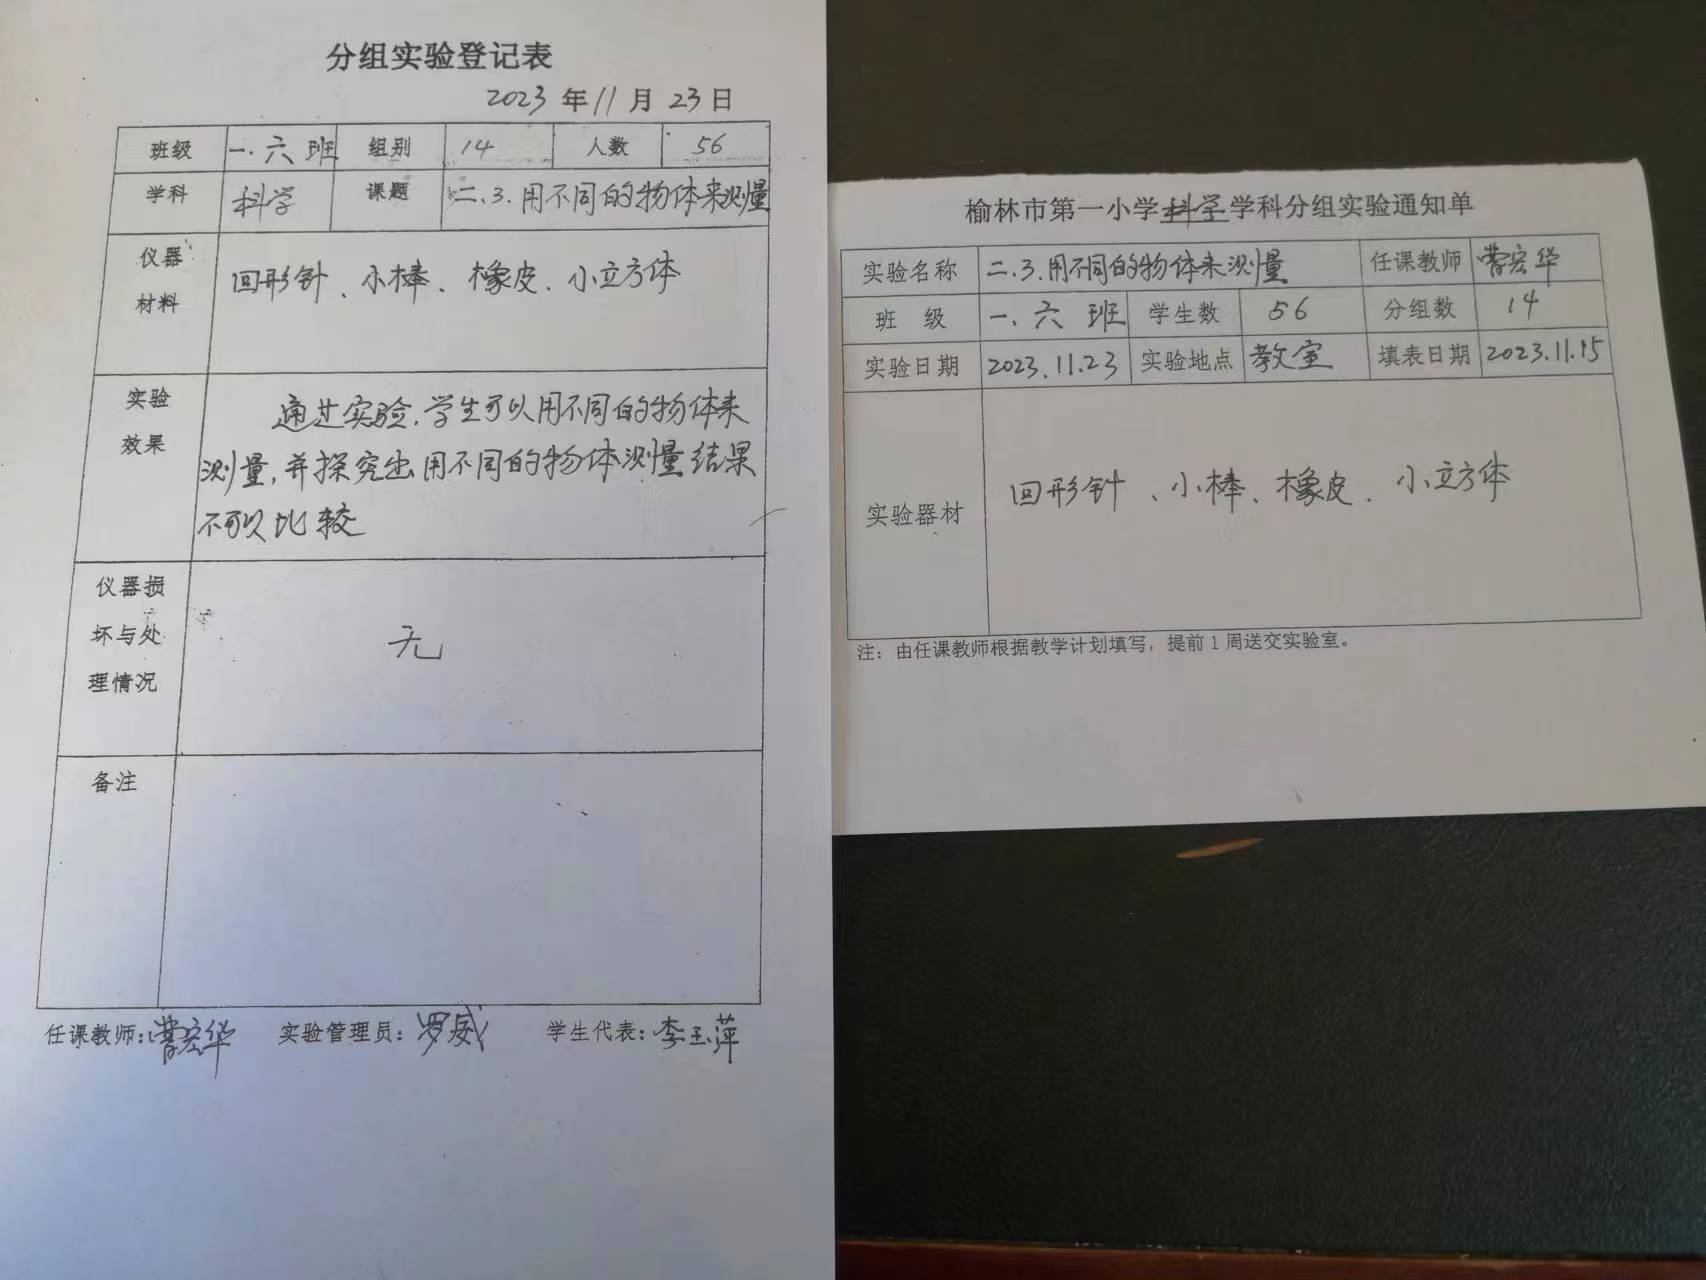 分组实验登记表
2023 年 11 月 23 日
班级 一.六班 组别 14 人数 56
学科 科学 课题 二.3.用不同的物体来测量
仪器
材料
回形针、小棒、橡皮、小立方体
实验
效果
通过实验,学生可以用不同的物体来
测量,并探究出用不同的物体测量结果
不可以比较
仪器损
坏与处
理情况
无
备注
任课教师:曹宏华 实验管理员:罗威 学生代表:李玉萍
榆林市第一小学科学学科分组实验通知单
实验名称 二.3.用不同的物体来测量 任课教师 曹宏华
班 级 一.六班 学生数 56 分组数 14
实验日期 2023.11.23 实验地点 教室 填表日期 2023.11.15
实验器材 回形针、小棒、橡皮、小立方体
注:由任课教师根据教学计划填写,提前1周送交实验室。